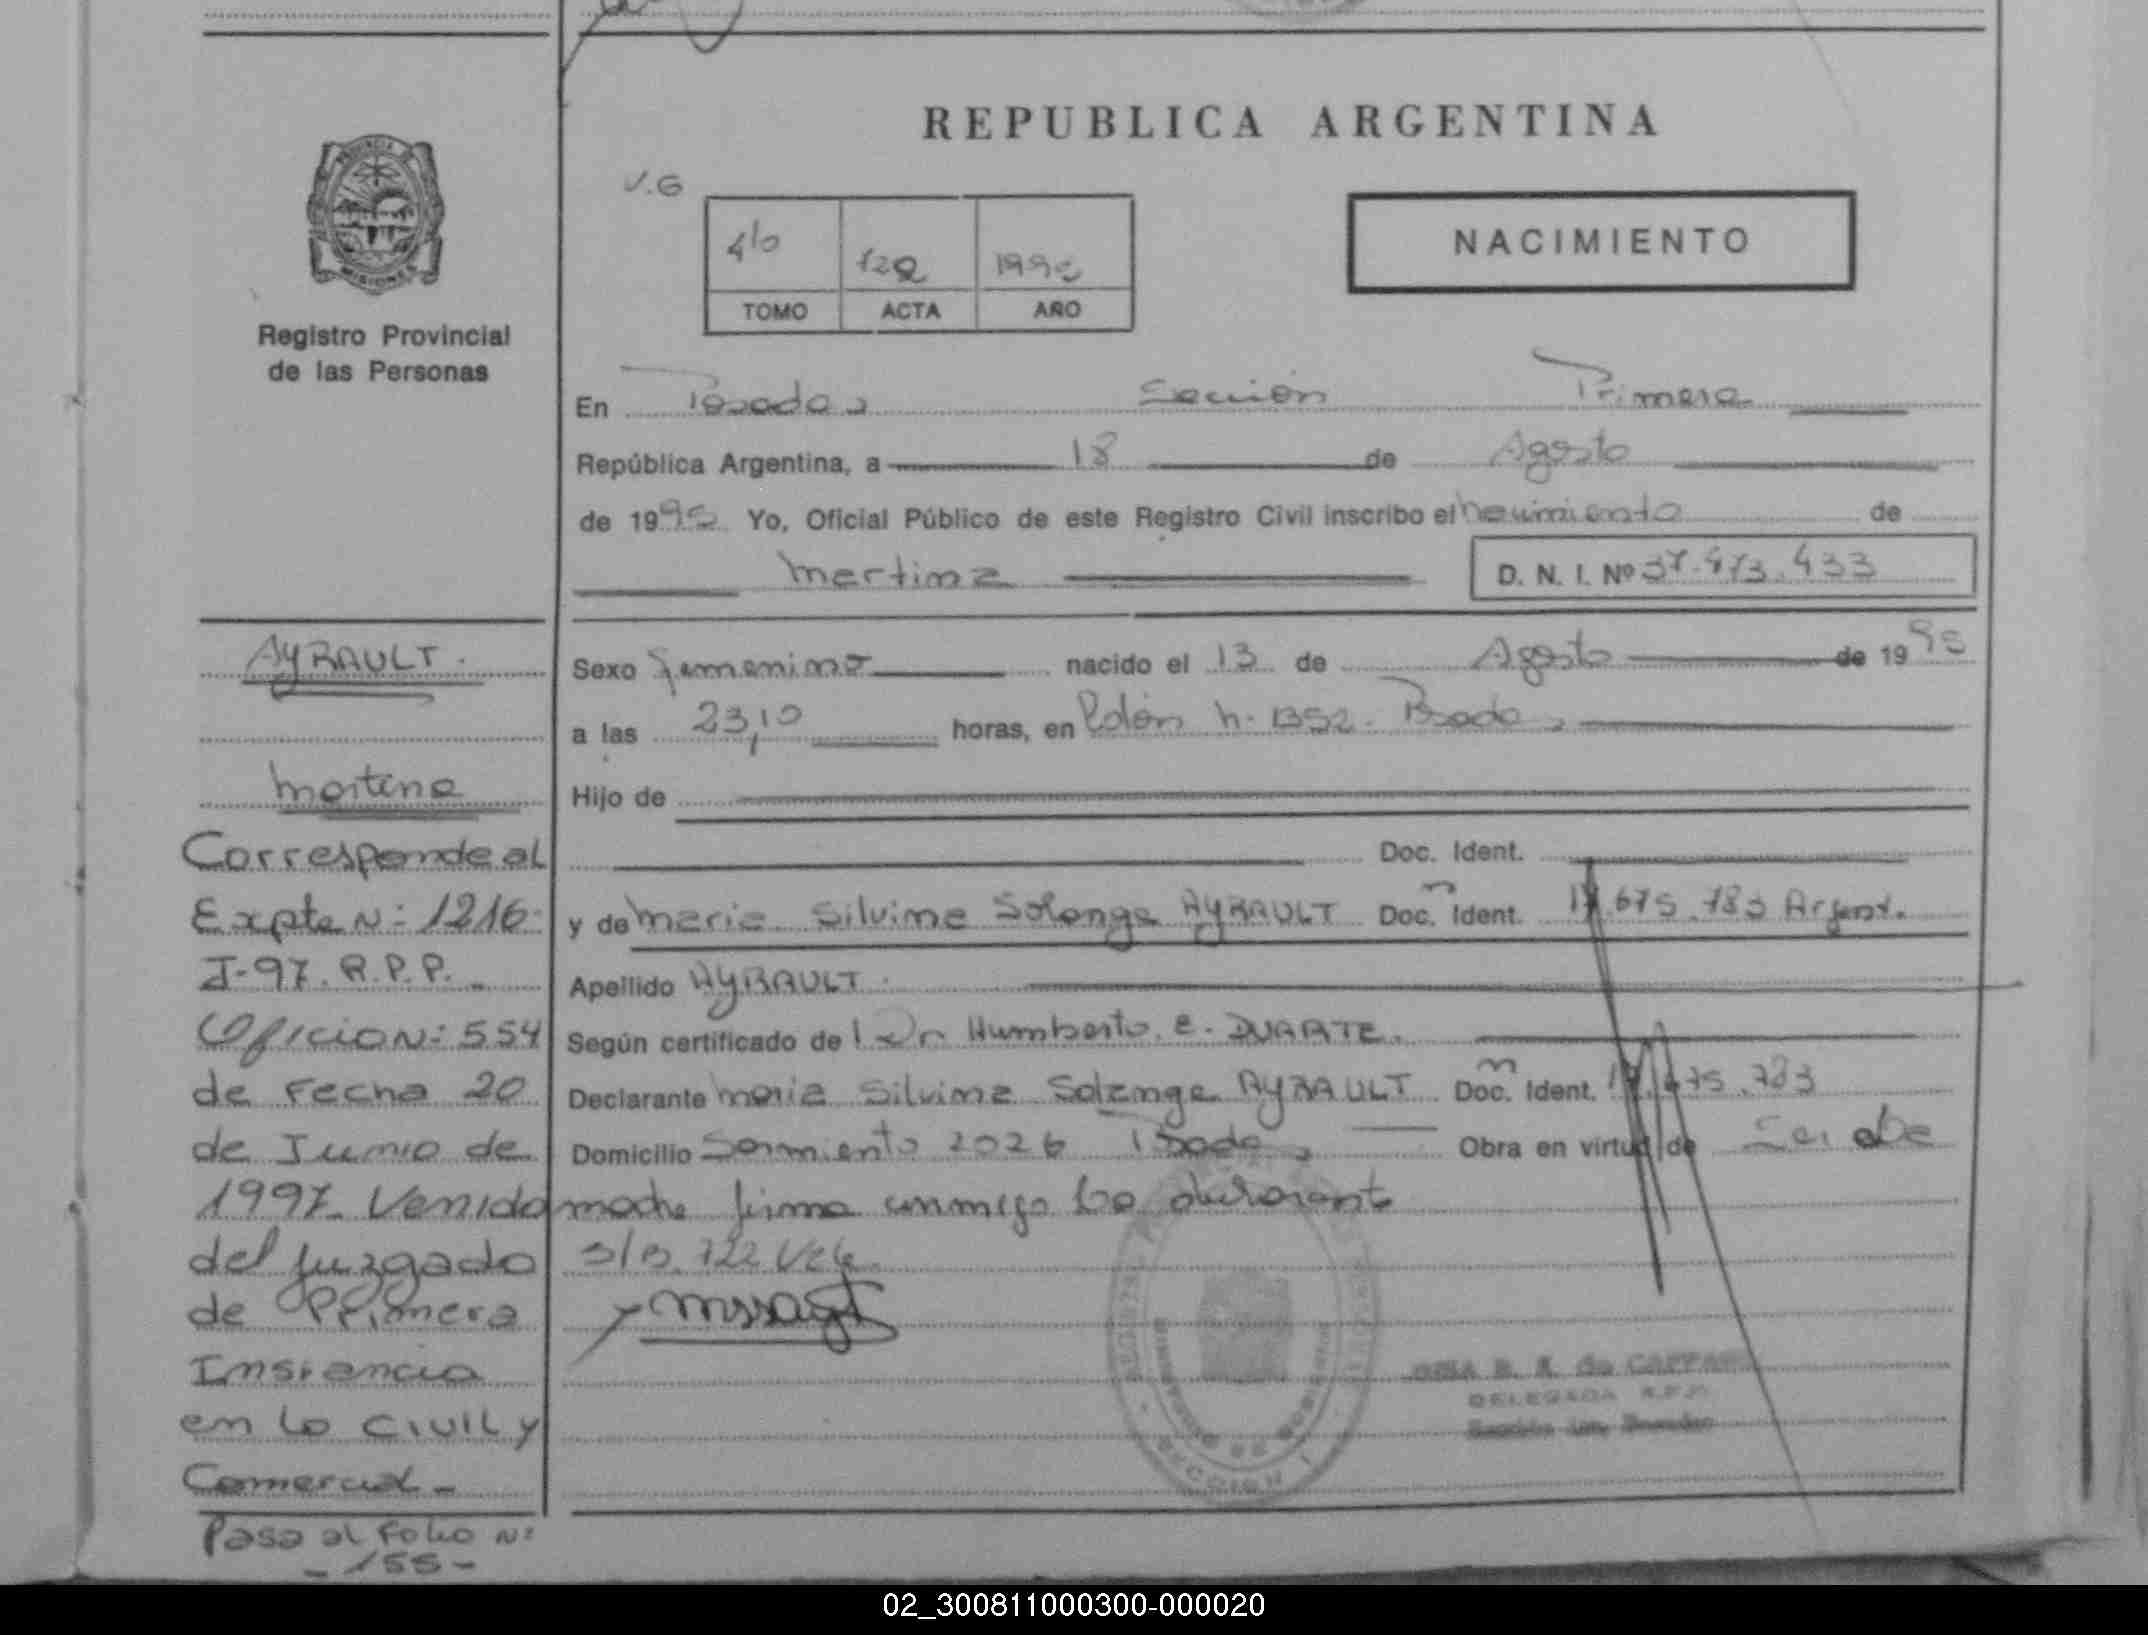 REPUBLICA ARGENTINA
V.G
NACIMIENTO
1995
TOMO ACTA AÑO
PROVINCIA DE
MISIONES
Registro Provincial
de las Personas
En Posadas Sección Primera
República Argentina, a 18 de Agosto
de 1995 Yo, Oficial Público de este Registro Civil inscribo el nacimiento de
Martina D. N. I. Nº 37.473.433
AYRAULT.
Martina
Corresponde al
Expte N: 1216-
J-97. R.P.P.
Oficio N: 554
de Fecha 20
de Junio de
1997. Venido
del Juzgado
de Primera
Instancia
en lo CIVIL y
Comercial.-
Pasa al Folio N:
- 155 -
Sexo femenino nacido el 13 de Agosto de 1995
a las 23,10 horas, en Colón N. 1352. Posadas
Hijo de
Doc. Ident.
y de Maria Silvina Solange AYRAULT Doc. Ident. 17.675.783 Argent.
Apellido AYRAULT.
Según certificado de Dr Humberto. E. DUARTE.
Declarante Maria Silvina Solange AYRAULT Doc. Ident. 17.675.783
Domicilio Sarmiento 2026 Posadas Obra en virtud de Ser la
madre firma conmigo la declarante
S/B. 722 Vale.
DELEGADA R.P.P.
Sección 1ra. Posadas
SECCION 1
02_300811000300-000020